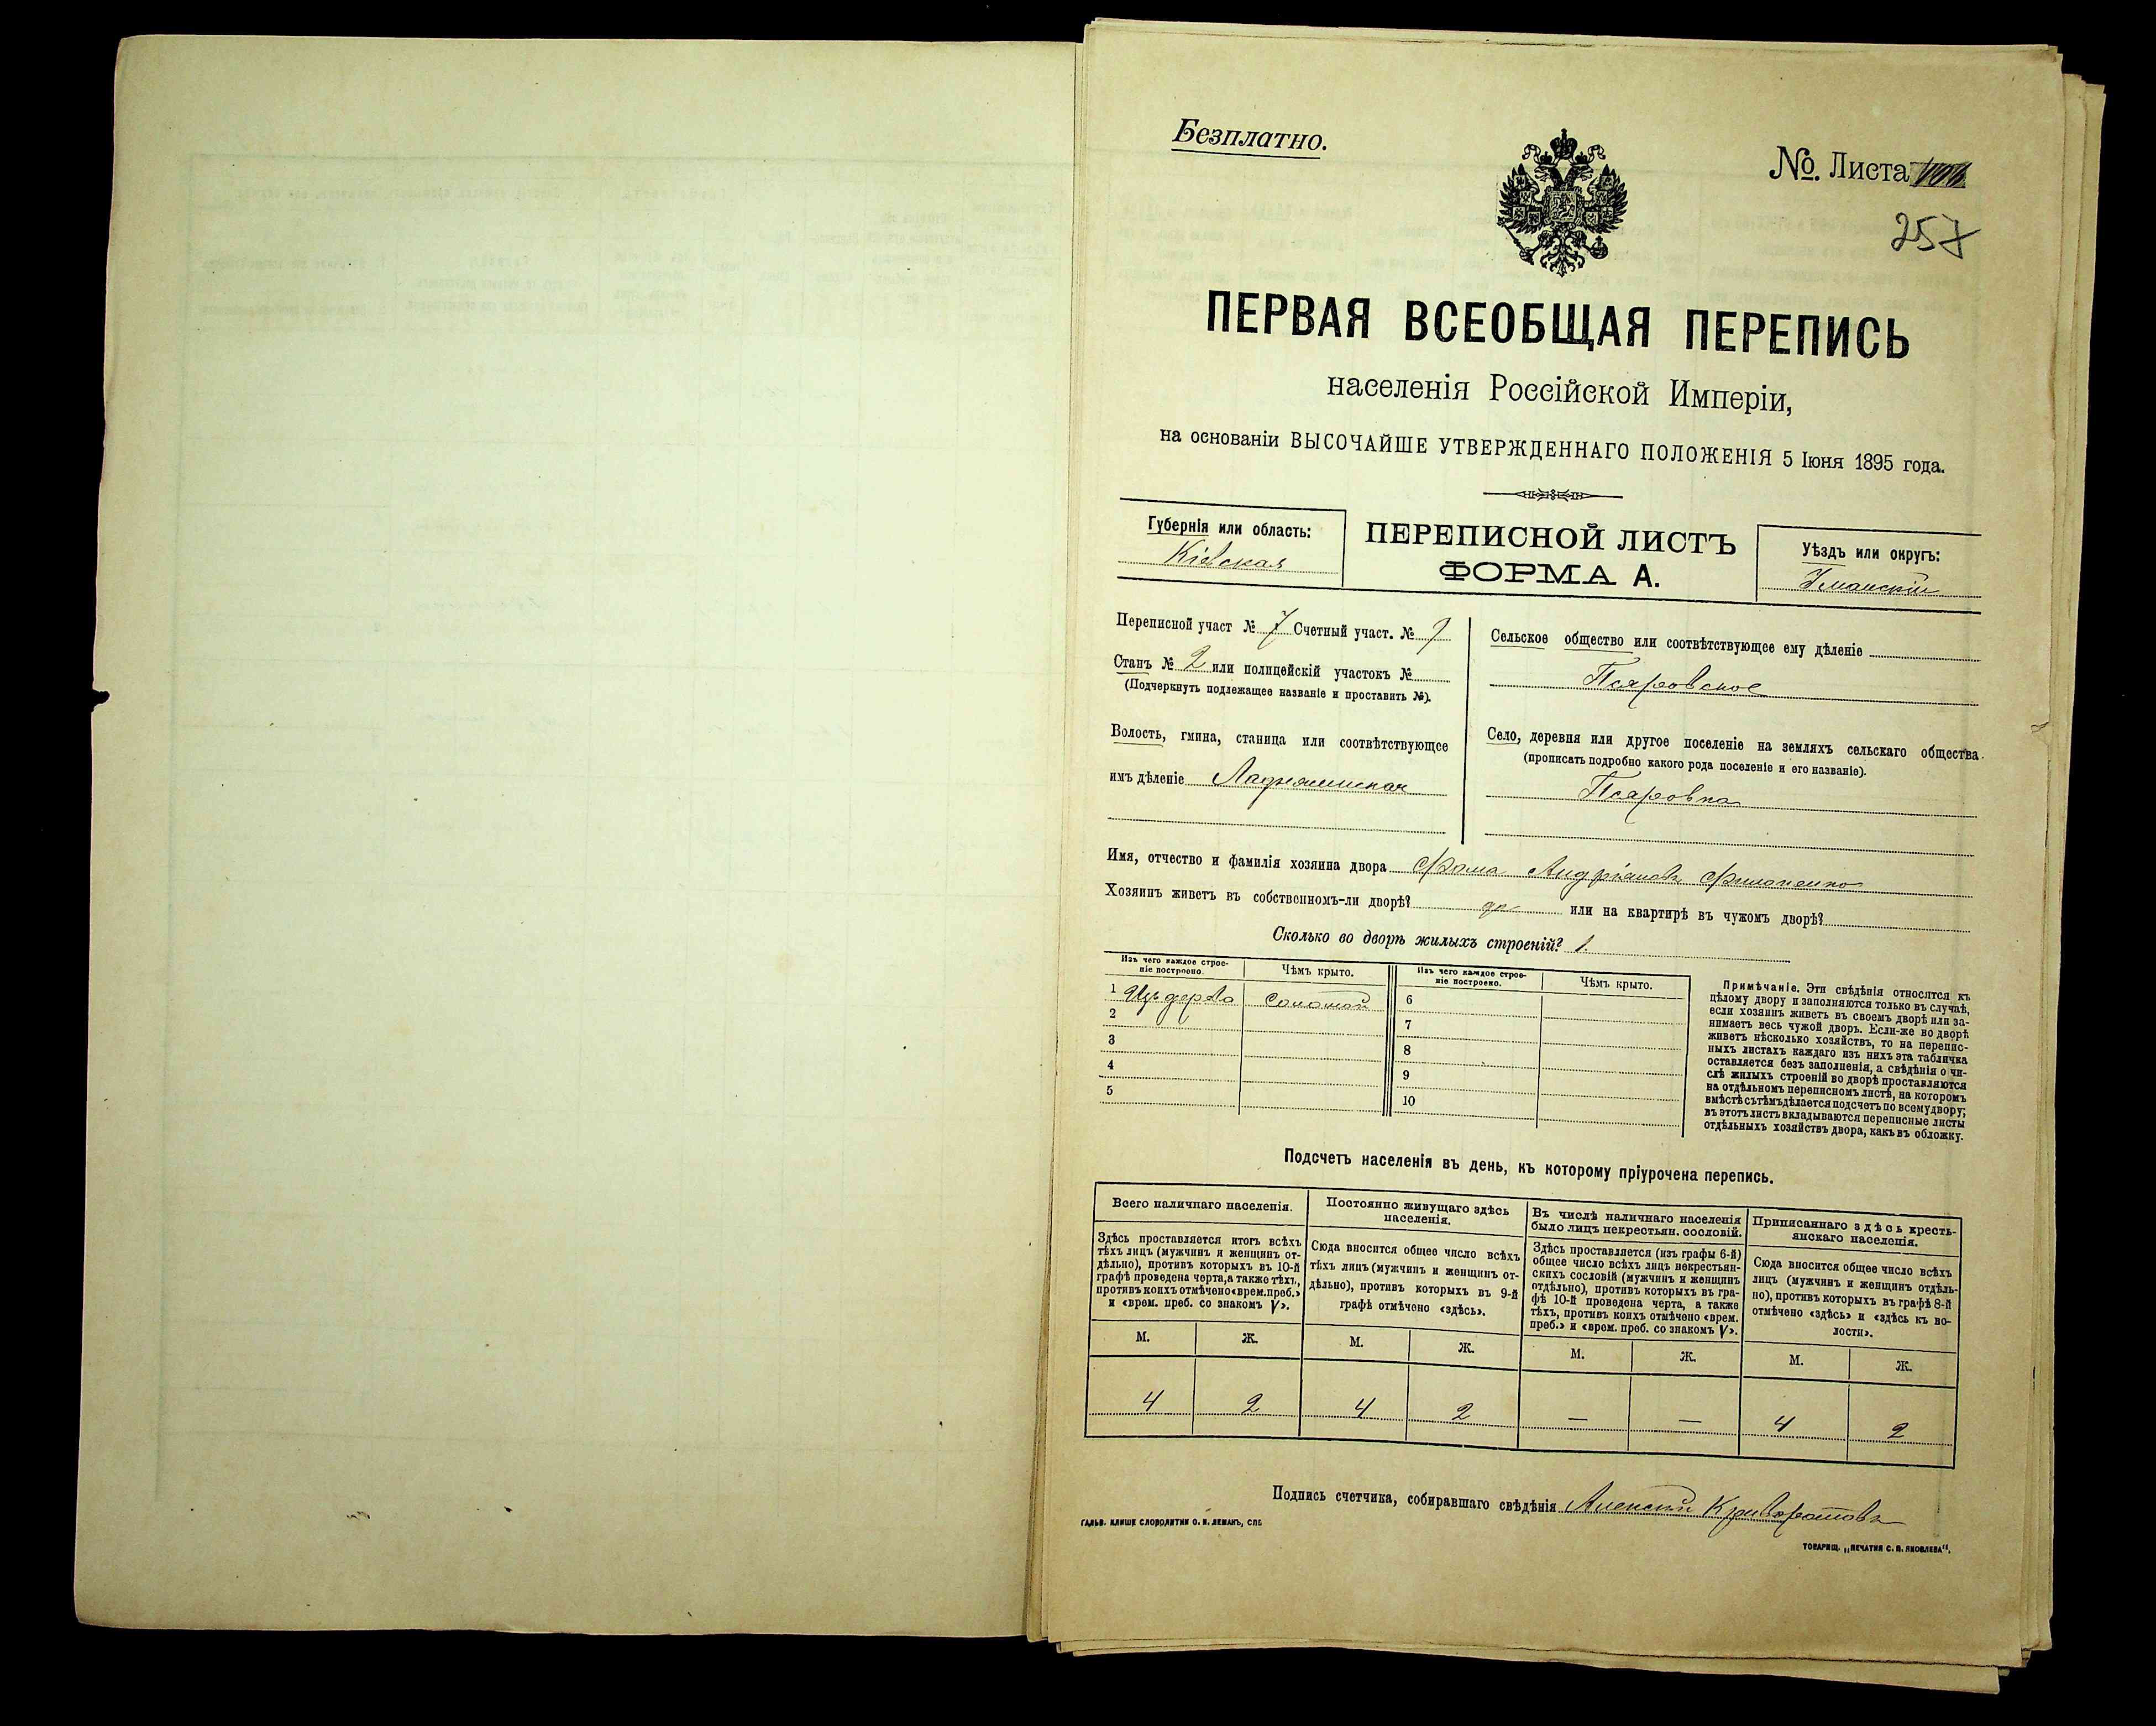 Безплатно.
№. Листа
257
ПЕРВАЯ ВСЕОБЩАЯ ПЕРЕПИСЬ
населенія Россійской Имперіи,
на основаніи ВЫСОЧАЙШЕ УТВЕРЖДЕННАГО ПОЛОЖЕНІЯ 5 Іюня 1895 года.
Губернія или область:
Кіевская
ПЕРЕПИСНОЙ ЛИСТЪ
ФОРМА А.
Уѣздъ или округъ:
Уманскій
Переписной участ № 7 Счетный участ. № 7
Станъ № 2 или полицейскій участокъ №
(Подчеркнуть подлежащее названіе и проставить №).
Волость, гмина, станица или соотвѣтствующее
имъ дѣленіе Ладыжинская
Сельское общество или соотвѣтствующее ему дѣленіе
Псяровское
Село, деревня или другое поселеніе на земляхъ сельскаго общества.
(прописать подробно какого рода поселеніе и его названіе).
Псяровка
Имя, отчество и фамилія хозяина двора Фома Андріановъ Филоненко
Хозяинъ живетъ въ собственномъ-ли дворѣ? да или на квартирѣ въ чужомъ дворѣ?
Сколько во дворѣ жилыхъ строеній? 1.
Изъ чего каждое строе-
ніе построено.
Чѣмъ крыто.
Изъ чего каждое строе-
ніе построено.
Чѣмъ крыто.
1 Изъ дерева Соломой 6
2 7
3 8
4 9
5 10
Примѣчаніе. Эти свѣдѣнія относятся къ
цѣлому двору и заполняются только въ случаѣ,
если хозяинъ живетъ въ своемъ дворѣ или за-
нимаетъ весь чужой дворъ. Если-же во дворѣ
живетъ нѣсколько хозяйствъ, то на перепис-
ныхъ листахъ каждаго изъ нихъ эта табличка
оставляется безъ заполненія, а свѣдѣнія о чи-
слѣ жилыхъ строеній во дворѣ проставляются
на отдѣльномъ переписномъ листѣ, на которомъ
вмѣстѣ съ тѣмъ дѣлается подсчетъ по всему двору;
въ этотъ листъ вкладываются переписные листы
отдѣльныхъ хозяйствъ двора, какъ въ обложку.
Подсчетъ населенія въ день, къ которому пріурочена перепись.
Всего наличнаго населенія.
Здѣсь проставляется итогъ всѣхъ
тѣхъ лицъ (мужчинъ и женщинъ от-
дѣльно), противъ которыхъ въ 10-й
графѣ проведена черта, а также тѣхъ,
противъ коихъ отмѣчено «врем. преб.»
и «врем. преб. со знакомъ V».
Постоянно живущаго здѣсь
населенія.
Сюда вносится общее число всѣхъ
тѣхъ лицъ (мужчинъ и женщинъ от-
дѣльно), противъ которыхъ въ 9-й
графѣ отмѣчено «здѣсь».
Въ числѣ наличнаго населенія
было лицъ некрестьян. сословій.
Здѣсь проставляется (изъ графы 6-й)
общее число всѣхъ лицъ некрестьян-
скихъ сословій (мужчинъ и женщинъ
отдѣльно), противъ которыхъ въ гра-
фѣ 10-й проведена черта, а также
тѣхъ, противъ коихъ отмѣчено «врем.
преб.» и «врем. преб. со знакомъ V».
Приписаннаго здѣсь кресть-
янскаго населенія.
Сюда вносится общее число всѣхъ
лицъ (мужчинъ и женщинъ отдѣль-
но), противъ которыхъ въ графѣ 8-й
отмѣчено «здѣсь» и «здѣсь къ во-
лости».
М. Ж. М. Ж. М. Ж. М. Ж.
4 2 4 2 — — 4 2
Подпись счетчика, собиравшаго свѣдѣнія Алексѣй Криворотовъ
ГАЛЬВ. КЛИШЕ СЛОВОЛИТНИ О. И. ЛЕМАНЪ, СПБ
ТОВАРИЩ. „ПЕЧАТНЯ С. П. ЯКОВЛЕВА“.